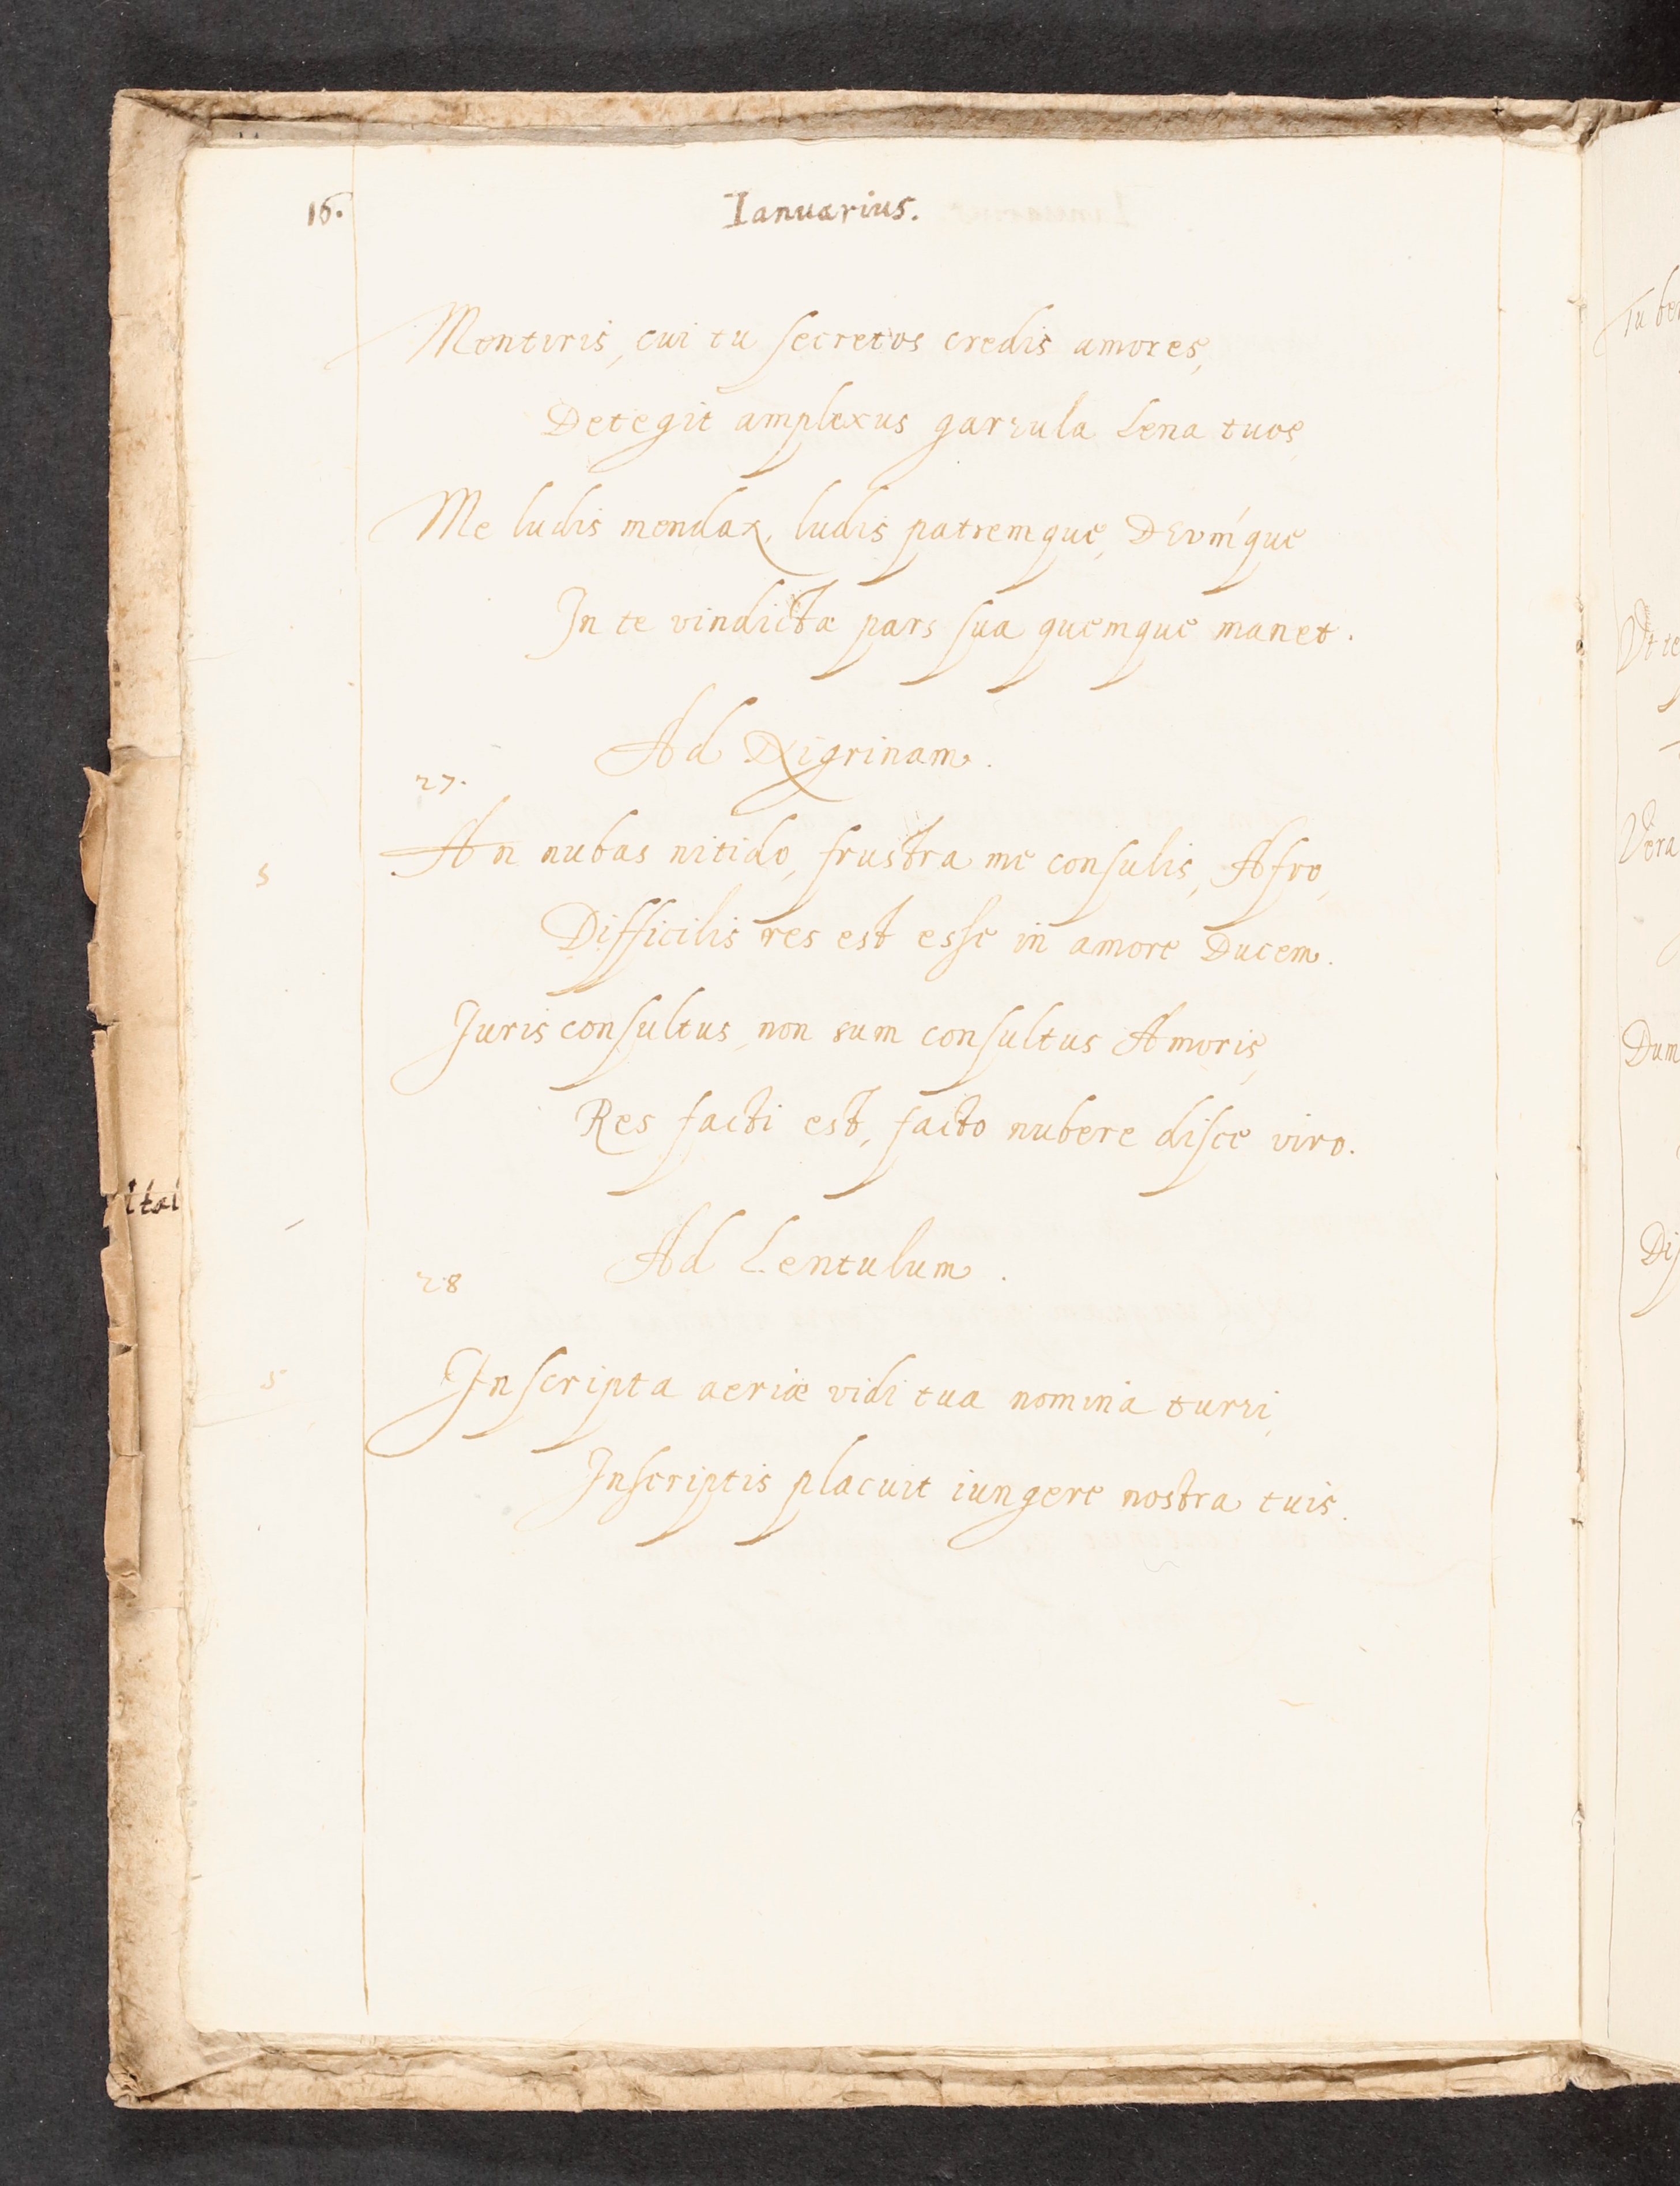 16. Ianuarius.
Mentiris, cui tu secretos credis amores,
Detegit amplexus garrula Lena tuos,
Me ludis mendax, ludis patremque, Deúmque
In te vindictæ pars sua quemque manet.
Ad Nigrinam.
27.
An nubas nitido, frustra me consulis, Afro,
5
Difficilis res est esse in amore Ducem.
Juris consultus, non sum consultus Amoris,
Res facti est, facto nubere disce viro.
ital
Ad Lentulum.
28
Inscripta aeriæ vidi tua nomina turri,
5
Inscriptis placuit iungere nostra tuis.
Vera
Dum